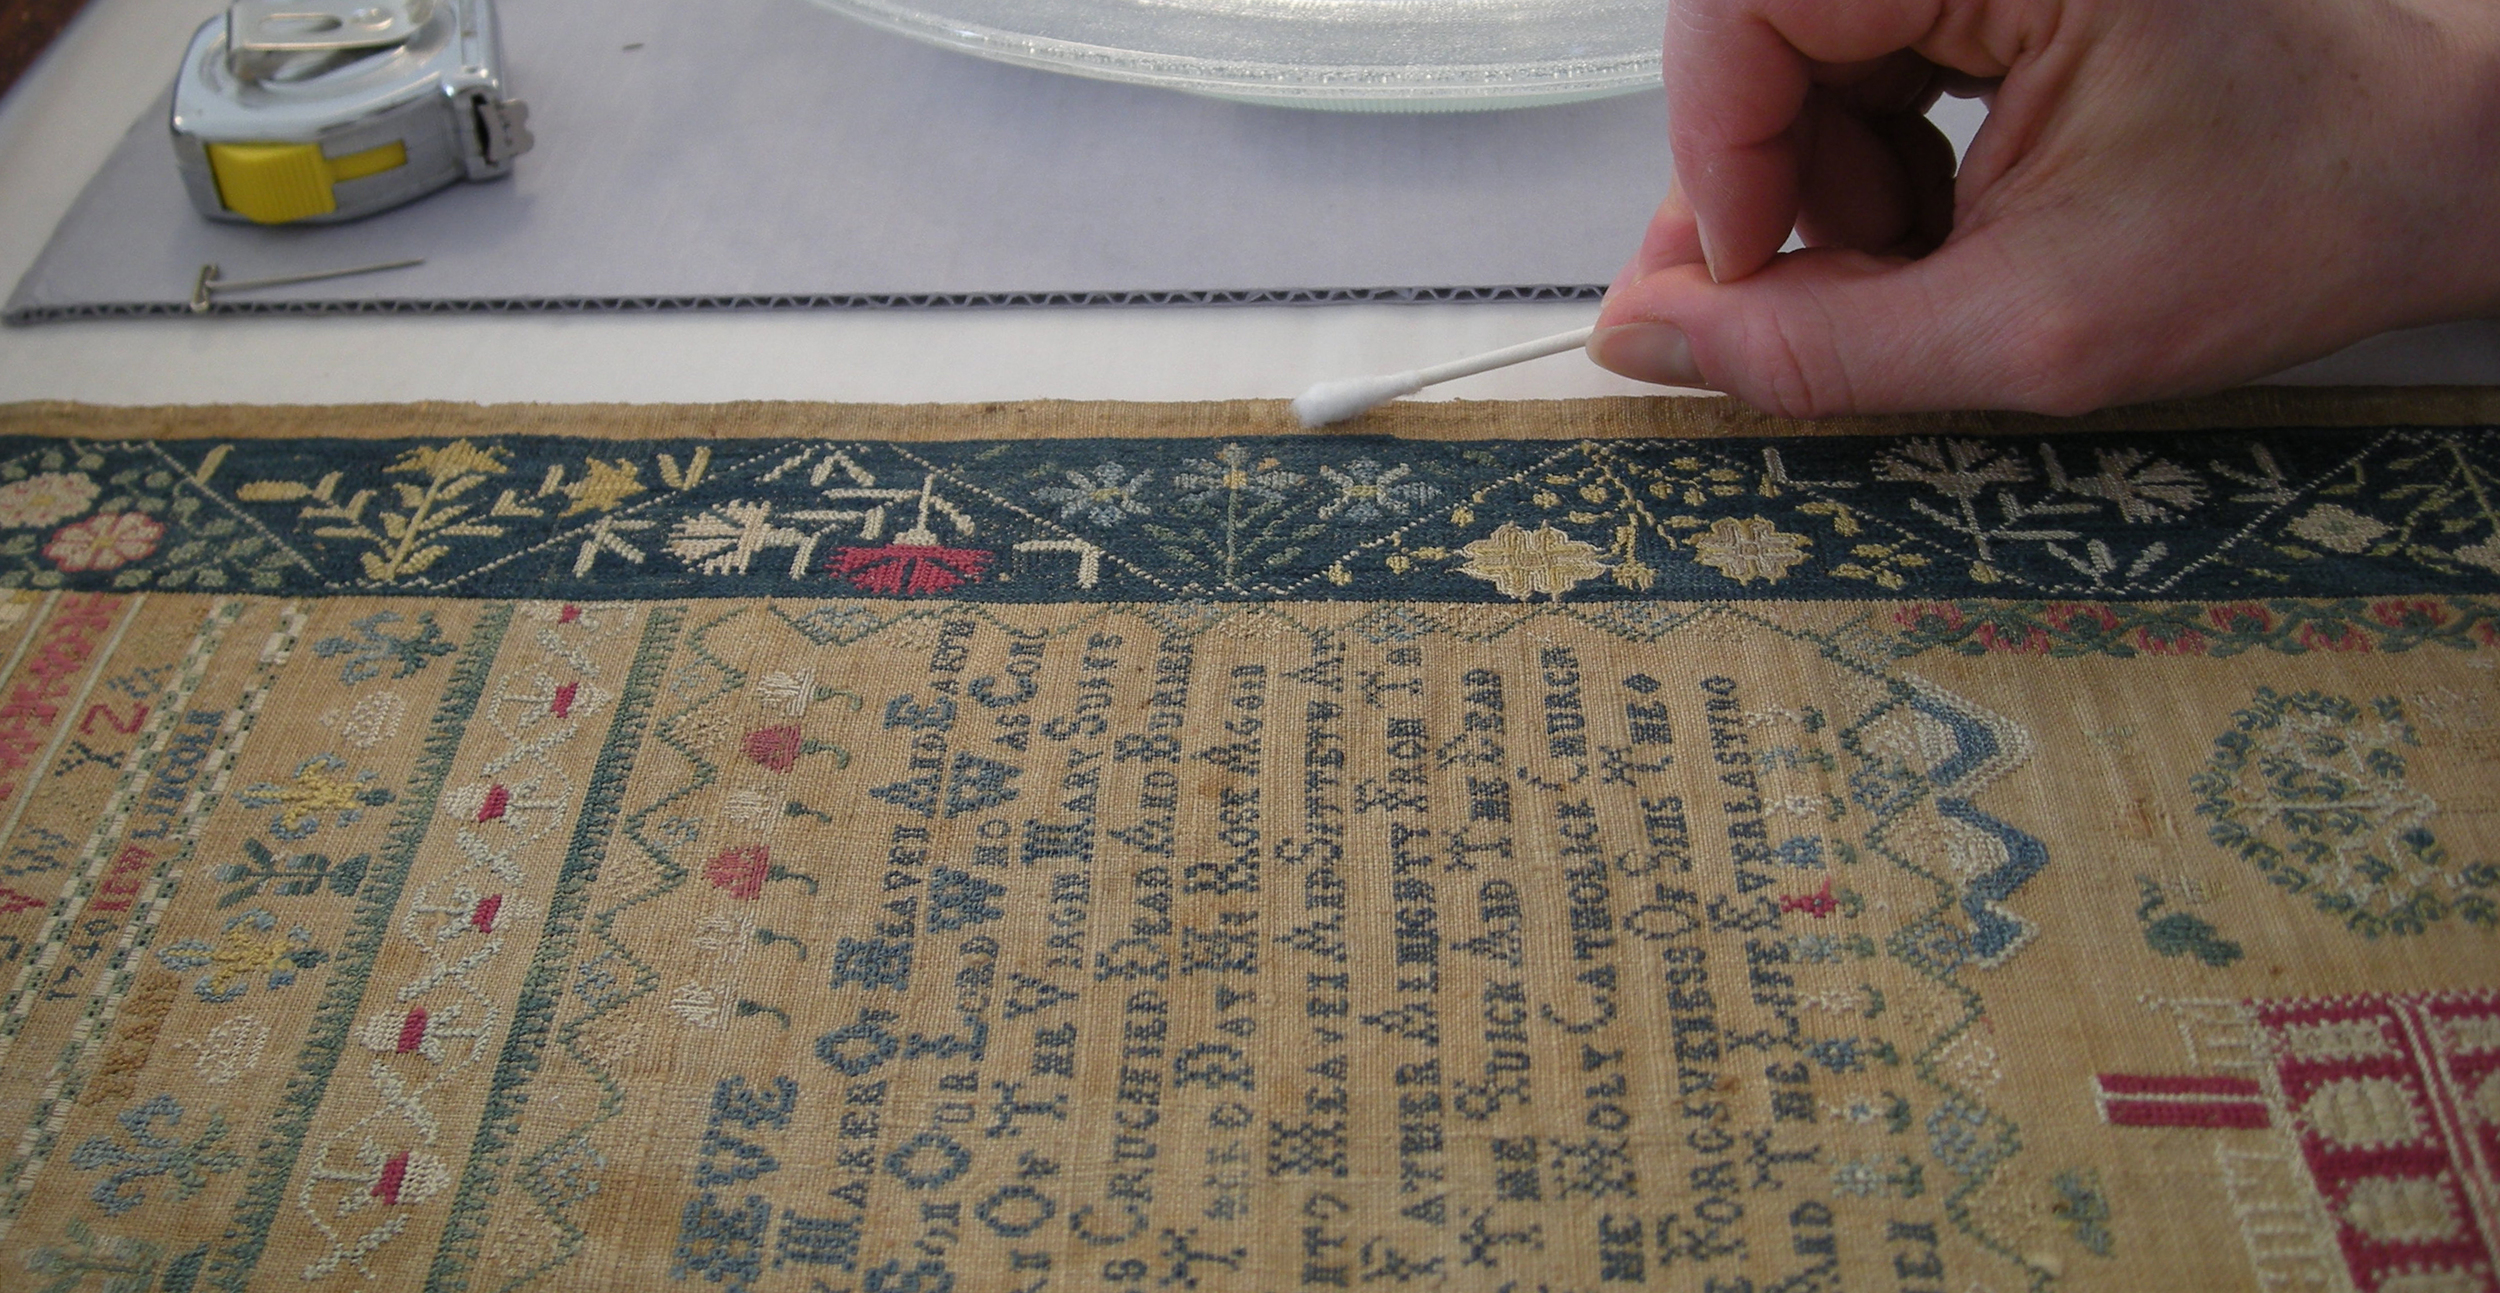 V W Y Z &
1740 LINCOLN
IEVE
MAKER OF HEAVEN AND EARTH
SON OUR LORD WHO WAS CON
OF THE VIRGIN MARY SUFFE
S CRUCIFIED DEAD AND BURIED
DAY HE ROSE AGAIN
NTO HEAVEN AND SITTETH AT
FATHER ALMIGHTY FROM
THE QUICK AND THE DEAD
HE HOLY CATHOLICK CHURCH
FORGIVENESS OF SINS THE
AND THE LIFE EVERLASTING
MEN